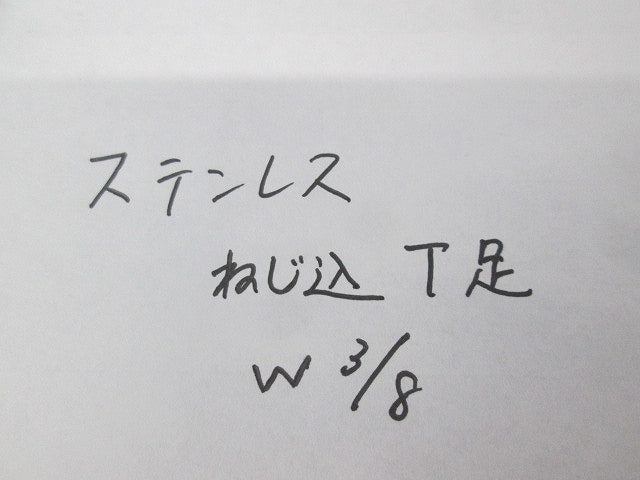 ステンレス
ねじ込 T足
W 3/8